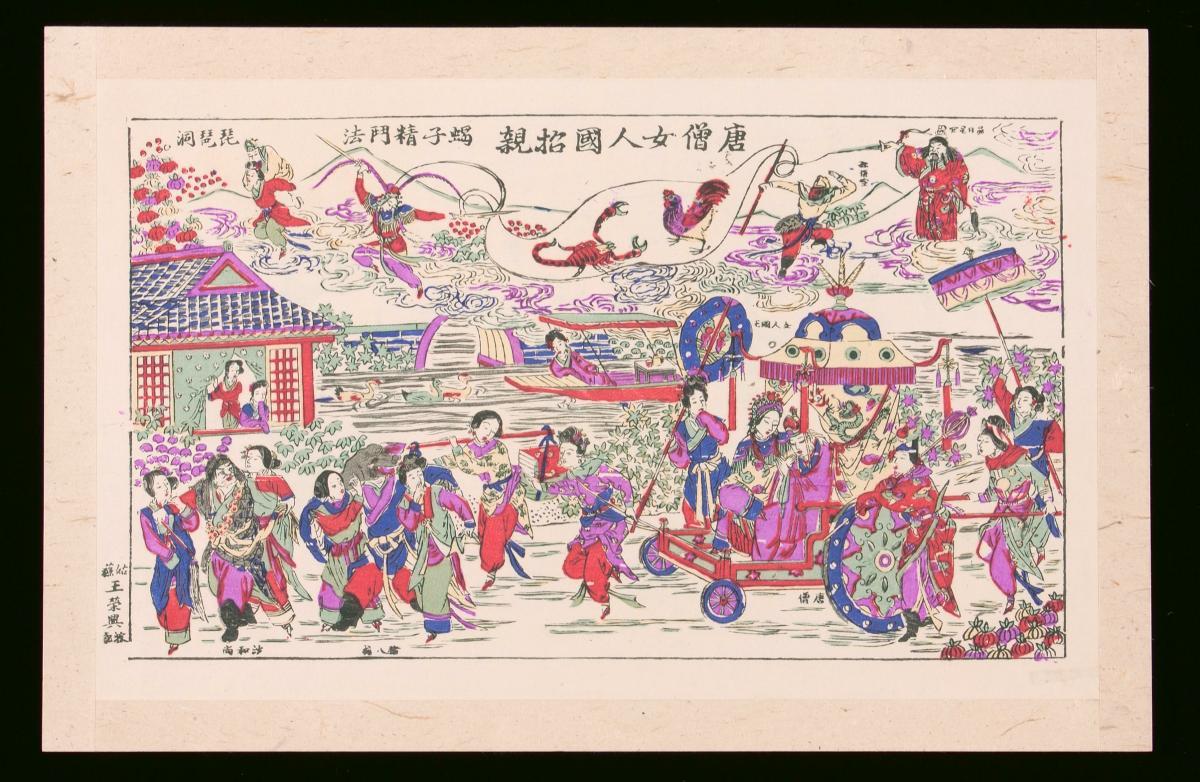 唐僧女人國招親
蝎子精鬥法
琵琶洞
孫悟空
女人國王
唐僧
猪八戒
沙和尚
姑蘇
王榮興